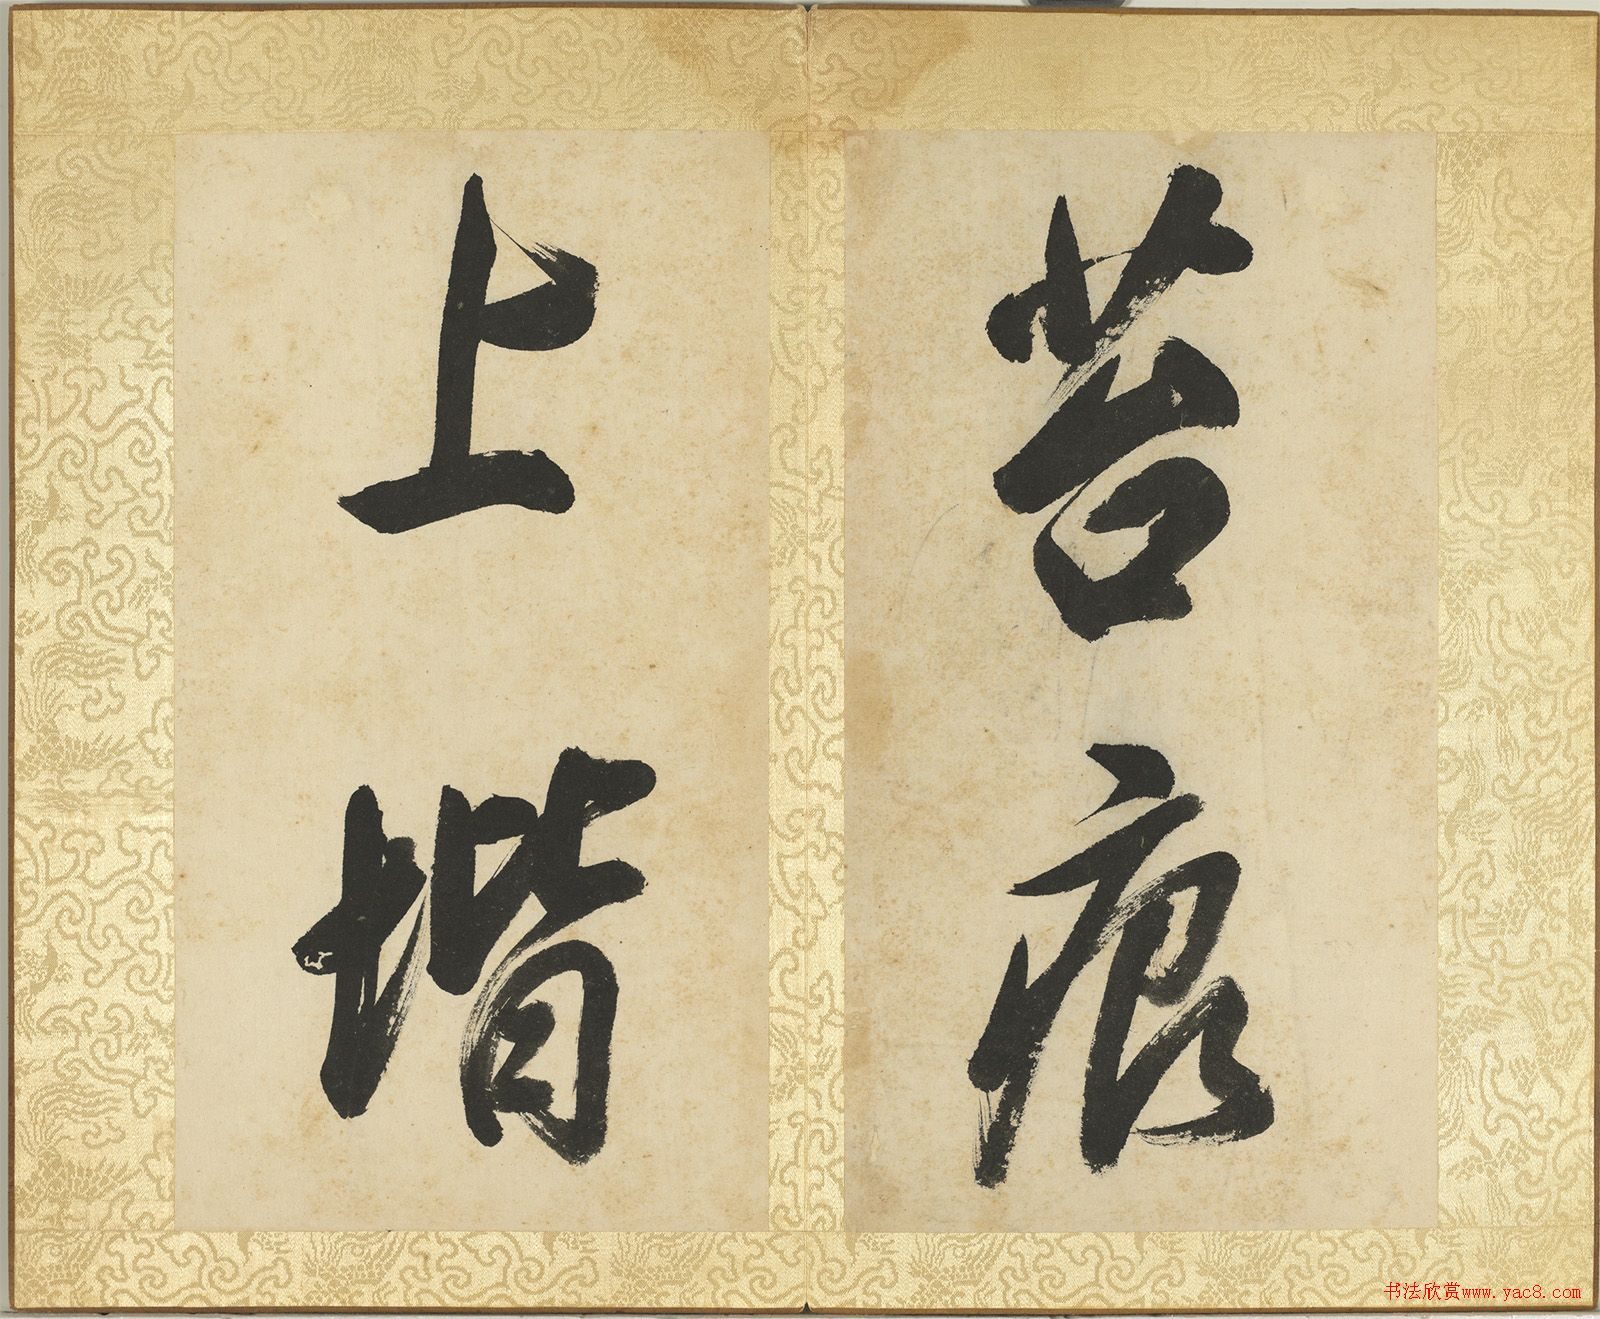 苔痕
上堦
书法欣赏www.yac8.com